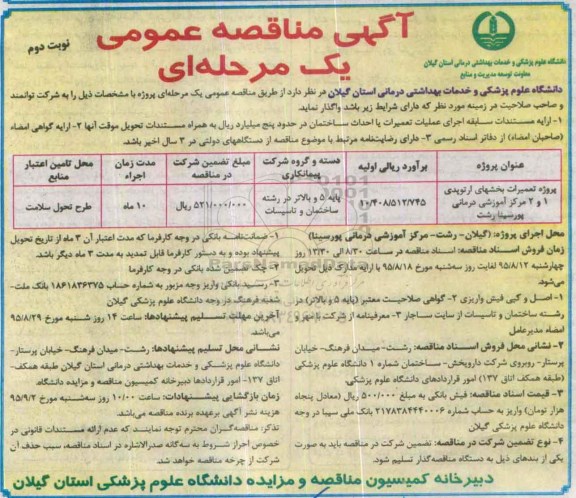 آگهی مناقصه عمومی
یک مرحله‌ای
نوبت دوم
دانشگاه علوم پزشکی و خدمات بهداشتی درمانی استان گیلان
معاونت توسعه مدیریت و منابع
دانشگاه علوم پزشکی و خدمات بهداشتی درمانی استان گیلان در نظر دارد از طریق مناقصه عمومی یک مرحله‌ای پروژه با مشخصات ذیل را به شرکت توانمند
و صاحب صلاحیت در زمینه مورد نظر که دارای شرایط زیر باشد واگذار نماید.
۱- ارایه مستندات سابقه اجرای عملیات تعمیرات یا احداث ساختمان در حدود پنج میلیارد ریال به همراه مستندات تحویل موقت آنها ۲- ارایه گواهی امضاء
(صاحبان امضاء) از دفاتر اسناد رسمی ۳- دارای رضایت‌نامه مرتبط با موضوع مناقصه از دستگاههای دولتی در ۳ سال اخیر باشد.
عنوان پروژه
برآورد ریالی اولیه
دسته و گروه شرکت پیمانکاری
مبلغ تضمین شرکت در مناقصه
مدت زمان اجراء
محل تامین اعتبار منابع
پروژه تعمیرات بخشهای ارتوپدی
۱ و ۲ مرکز آموزشی درمانی
پورسینا رشت
۱۰/۴۰۸/۵۱۲/۷۴۵
پایه ۵ و بالاتر در رشته
ساختمان و تاسیسات
۵۲۱/۰۰۰/۰۰۰ ریال
۱۰ ماه
طرح تحول سلامت
محل اجرای پروژه: (گیلان- رشت- مرکز آموزشی درمانی پورسینا)
زمان فروش اسناد مناقصه: اسناد مناقصه در ساعت ۸/۳۰ الی ۱۳/۳۰ روز
چهارشنبه ۹۵/۸/۱۲ لغایت روز سه‌شنبه مورخ ۹۵/۸/۱۸ با ارایه مدارک ذیل تحویل
می‌شود.
۱- اصل و کپی فیش واریزی ۲- گواهی صلاحیت معتبر (پایه ۵ و بالاتر) در
رشته ساختمان و تاسیسات از سایت ساجار ۳- معرفینامه از شرکت با مهر و
امضاء مدیرعامل
۲- نشانی محل فروش اسناد مناقصه: رشت- میدان فرهنگ- خیابان
پرستار- روبروی شرکت داروپخش- ساختمان شماره ۱ دانشگاه علوم پزشکی
(طبقه همکف اتاق ۱۳۷) امور قراردادهای دانشگاه علوم پزشکی.
۳- قیمت اسناد مناقصه: فیش بانکی به مبلغ ۵۰۰/۰۰۰ ریال (معادل پنجاه
هزار تومان) واریز به حساب شماره ۲۱۷۸۳۸۴۴۴۰۰۰۶ بانک ملی سیبا در وجه
دانشگاه علوم پزشکی گیلان
۴- نوع تضمین شرکت در مناقصه: تضمین شرکت در مناقصه باید به صورت
یکی از بندهای ذیل به دستگاه مناقصه‌گذار تسلیم شود.
۱- ضمانت‌نامه بانکی در وجه کارفرما که مدت اعتبار آن ۳ ماه از تاریخ تحویل
پیشنهاد بوده و به دستور کارفرما قابل تمدید به مدت ۳ ماه دیگر باشد.
۲- چک تضمین شده بانکی در وجه کارفرما
۳- رسید بانکی واریز وجه مزبور به شماره حساب ۱۸۶۱۸۳۶۲۷۵ بانک ملت-
شعبه فرهنگ در وجه دانشگاه علوم پزشکی گیلان
آخرین مهلت تسلیم پیشنهادها: ساعت ۱۴ روز شنبه مورخ ۹۵/۸/۲۹
می‌باشد.
نشانی محل تسلیم پیشنهادها: رشت- میدان فرهنگ- خیابان پرستار-
دانشگاه علوم پزشکی و خدمات بهداشتی درمانی استان گیلان طبقه همکف-
اتاق ۱۳۷- امور قراردادها دبیرخانه کمیسیون مناقصه و مزایده دانشگاه.
زمان بازگشایی پیشنهادات: ساعت ۱۰/۰۰ روز سه‌شنبه مورخ ۹۵/۹/۲
هزینه نشر آگهی برعهده برنده مناقصه می‌باشد.
تذکر: مناقصه‌گران محترم توجه نمایند که عدم ارائه مستندات قانونی در
خصوص احراز شروط به سه‌گانه صدرالاشاره در اسناد مناقصه، سبب حذف آن
شرکت از چرخه مناقصه خواهد شد.
دبیرخانه کمیسیون مناقصه و مزایده دانشگاه علوم پزشکی استان گیلان